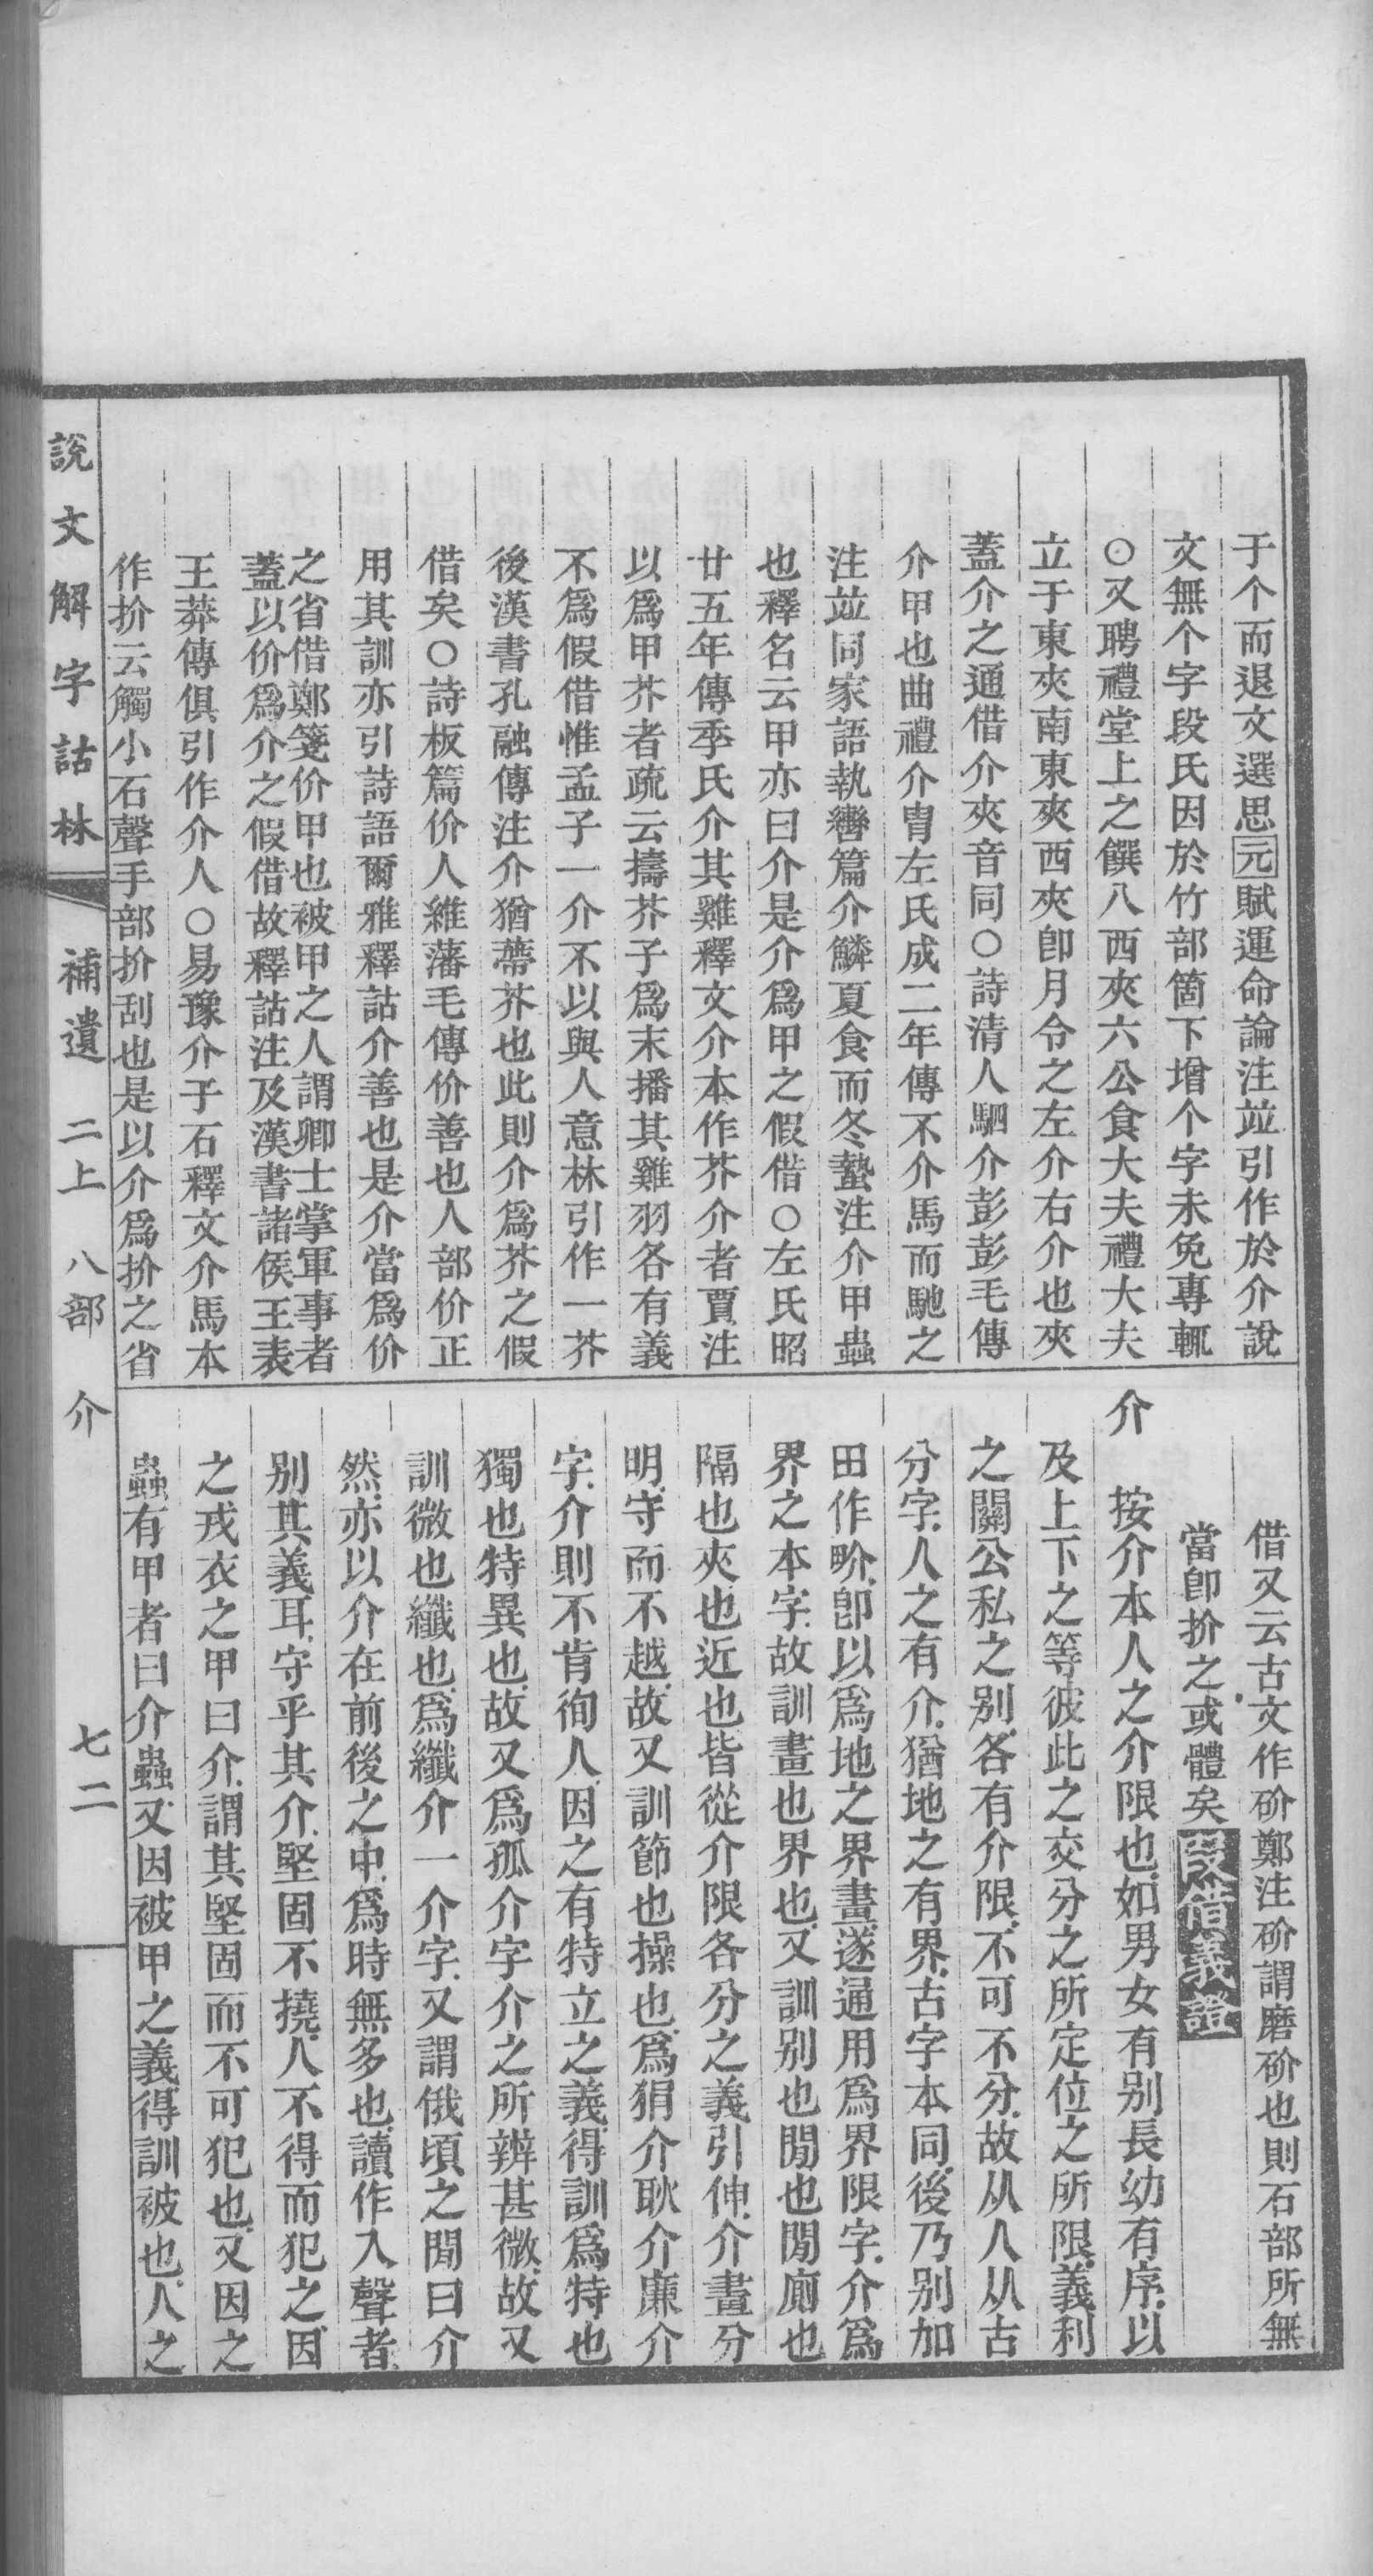 于个而退文選思元賦運命論注並引作於介說
文無个字段氏因於竹部箇下增个字未免專輒
○又聘禮堂上之饌八西夾六公食大夫禮大夫
立于東夾南東夾西夾卽月令之左介右介也夾
蓋介之通借介夾音同○詩清人駟介彭彭毛傳
介甲也曲禮介胄左氏成二年傳不介馬而馳之
注並同家語執轡篇介鱗夏食而冬蟄注介甲蟲
也釋名云甲亦曰介是介爲甲之假借○左氏昭
廿五年傳季氏介其雞釋文介本作芥介者賈注
以爲甲芥者疏云擣芥子爲末播其雞羽各有義
不爲假借惟孟子一介不以與人意林引作一芥
後漢書孔融傳注介猶蔕芥也此則介爲芥之假
借矣○詩板篇价人維藩毛傳价善也人部价正
用其訓亦引詩語爾雅釋詁介善也是介當爲价
之省借鄭箋价甲也被甲之人謂卿士掌軍事者
蓋以价爲介之假借故釋詁注及漢書諸侯王表
王莽傳俱引作介人○易豫介子石釋文介馬本
作扴云觸小石聲手部扴刮也是以介爲扴之省
借又云古文作砎鄭注砎謂磨砎也則石部所無
當卽扴之或體矣叚借義證
介　按介本人之介限也如男女有別長幼有序以
及上下之等彼此之交分之所定位之所限義利
之關公私之別各有介限不可不分故从人从古
分字人之有介猶地之有界古字本同後乃別加
田作畍卽以爲地之界畫遂通用爲界限字介爲
界之本字故訓畫也界也又訓別也閒也閒廁也
隔也夾也近也皆從介限各分之義引伸介畫分
明守而不越故又訓節也操也爲狷介耿介廉介
字介則不肯徇人因之有特立之義得訓爲特也
獨也特異也故又爲孤介字介之所辨甚微故又
訓微也纖也爲纖介一介字又謂俄頃之閒曰介
然亦以介在前後之中爲時無多也讀作入聲者
別其義耳守乎其介堅固不撓人不得而犯之因
之戎衣之甲曰介謂其堅固而不可犯也又因之
蟲有甲者曰介蟲又因被甲之義得訓被也人之
說文解字詁林　補遺　二上　八部　介　七二